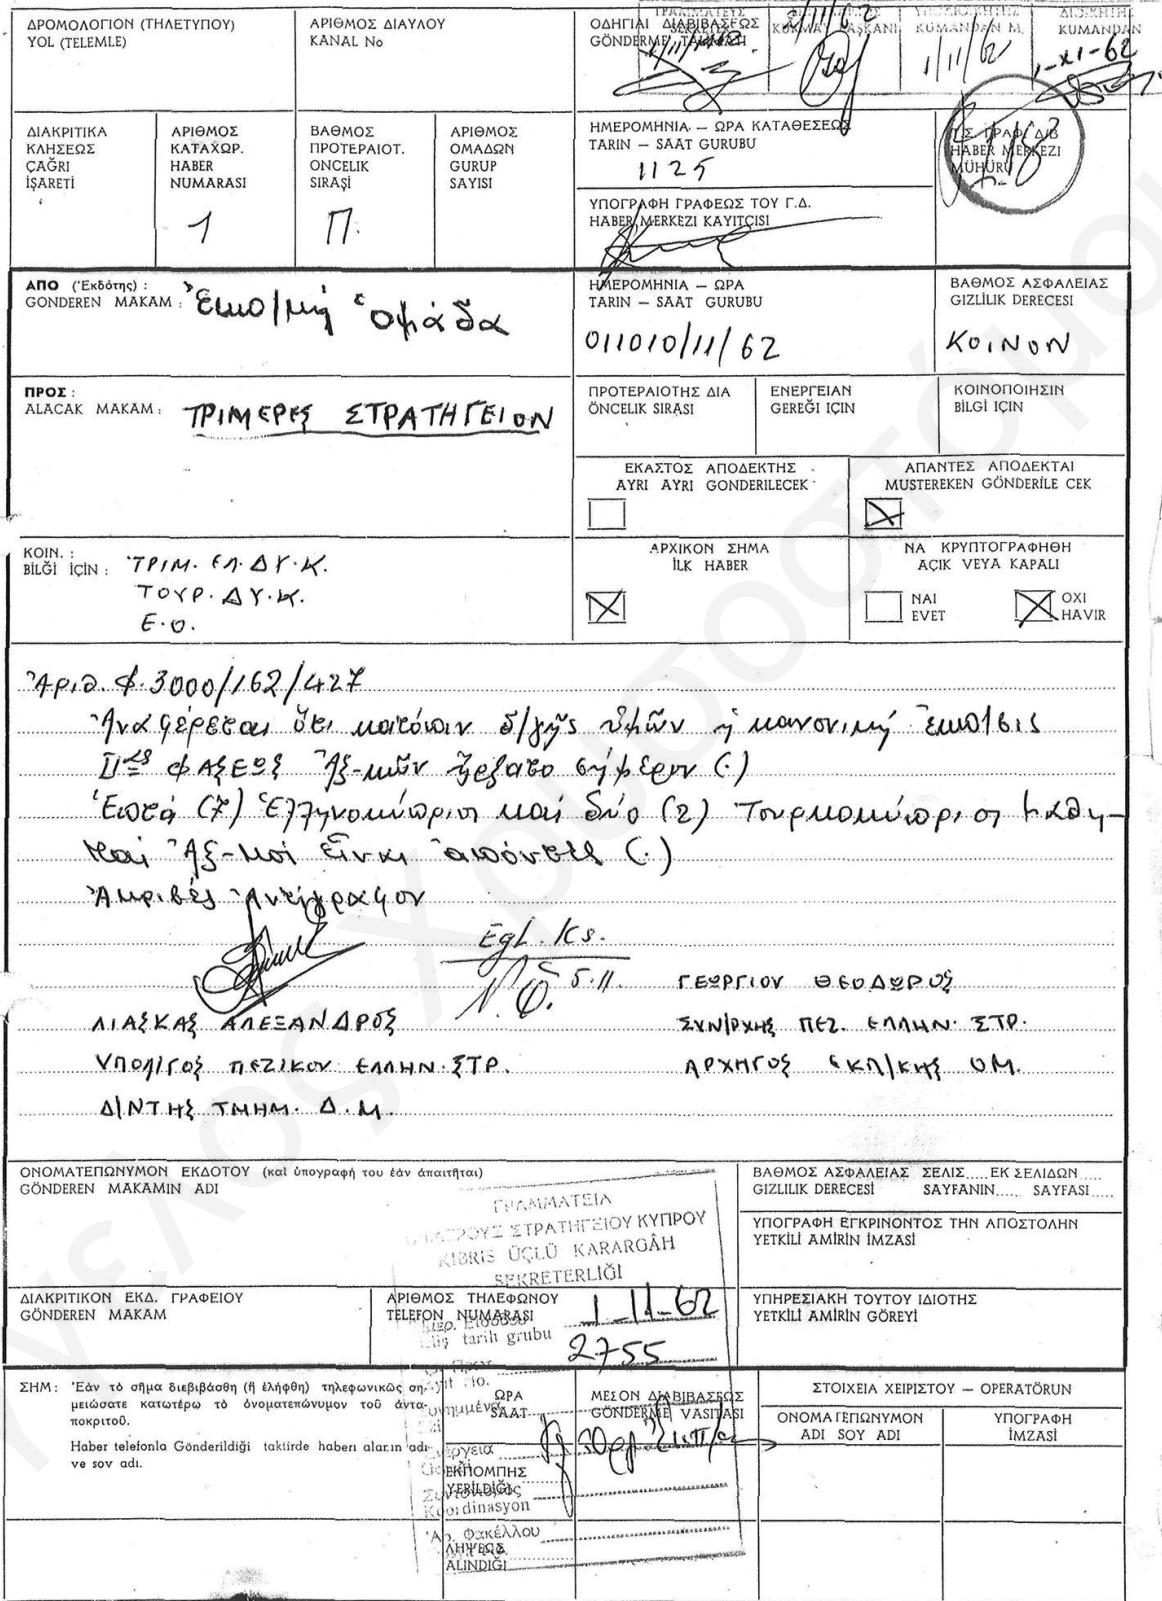 ΔΡΟΜΟΛΟΓΙΟΝ (ΤΗΛΕΤΥΠΟΥ)
YOL (TELEMLE)
ΑΡΙΘΜΟΣ ΔΙΑΥΛΟΥ
KANAL No
ΟΔΗΓΙΑΙ ΔΙΑΒΙΒΑΣΕΩΣ
GÖNDERME
ΓΡΑΜΜΑΤΕΥΣ
SEKRETER
2/11/62
KUMANDAN M.
1/11/62
ΔΙΟΙΚΗΤΗΣ
KUMANDAN
1-XI-62
ΔΙΑΚΡΙΤΙΚΑ
ΚΛΗΣΕΩΣ
ÇAĞRI
İŞARETİ
ΑΡΙΘΜΟΣ
ΚΑΤΑΧΩΡ.
HABER
NUMARASI
1
ΒΑΘΜΟΣ
ΠΡΟΤΕΡΑΙΟΤ.
ONCELIK
SIRAŞİ
Π.
ΑΡΙΘΜΟΣ
ΟΜΑΔΩΝ
GURUP
SAYISI
ΗΜΕΡΟΜΗΝΙΑ — ΩΡΑ ΚΑΤΑΘΕΣΕΩΣ
TARIN — SAAT GURUBU
1125
ΥΠΟΓΡΑΦΗ ΓΡΑΦΕΩΣ ΤΟΥ Γ.Δ.
HABER MERKEZI KAYITÇISI
HABER MERKEZI
MÜHÜRÜ
ΑΠΟ (Ἐκδότης) :
GONDEREN MAKAM :
Ἐκπ/κή ὁμάδα
ΗΜΕΡΟΜΗΝΙΑ — ΩΡΑ
TARIN — SAAT GURUBU
011010/11/62
ΒΑΘΜΟΣ ΑΣΦΑΛΕΙΑΣ
GIZLILIK DERECESI
ΚΟΙΝΟΝ
ΠΡΟΣ :
ALACAK MAKAM :
ΤΡΙΜΕΡΕΣ ΣΤΡΑΤΗΓΕΙΟΝ
ΠΡΟΤΕΡΑΙΟΤΗΣ ΔΙΑ
ÖNCELIK SIRASI
ΕΝΕΡΓΕΙΑΝ
GEREĞI IÇIN
ΚΟΙΝΟΠΟΙΗΣΙΝ
BİLGI IÇIN
ΕΚΑΣΤΟΣ ΑΠΟΔΕΚΤΗΣ
AYRI AYRI GONDERILECEK
ΑΠΑΝΤΕΣ ΑΠΟΔΕΚΤΑΙ
MUSTEREKEN GÖNDERİLE CEK
ΚΟΙΝ. :
BİLĞİ IÇİN :
ΤΡΙΜ. ΕΛ.ΔΥ.Κ.
ΤΟΥΡ.ΔΥ.Κ.
Ε.Ο.
ΑΡΧΙΚΟΝ ΣΗΜΑ
İLK HABER
ΝΑ ΚΡΥΠΤΟΓΡΑΦΗΘΗ
AÇIK VEYA KAPALI
ΝΑΙ
EVET
ΟΧΙ
HAVIR
Ἀριθ. Φ.3000/162/427
Ἀναφέρεται ὅτι κατόπιν δ/γῆς ὑμῶν ἡ κανονική ἐκπ/σις
ΙΙας ΦΑΣΕΩΣ Ἀξ-κῶν ἤρξατο σήμερον (.)
Ἑπτά (7) Ἑλληνοκύπριοι καί δύο (2) Τουρκοκύπριοι μαθη-
ταί Ἀξ-κοί εἶναι ἀπόντες (.)
Ἀκριβές Ἀντίγραφον
Egl. Ks.
5.11.
ΓΕΩΡΓΙΟΥ ΘΕΟΔΩΡΟΣ
ΛΙΑΣΚΑΣ ΑΛΕΞΑΝΔΡΟΣ
ΣΥΝ/ΡΧΗΣ ΠΕΖ. ΕΛΛΗΝ. ΣΤΡ.
ΥΠΟΛ/ΓΟΣ ΠΕΖΙΚΟΥ ΕΛΛΗΝ.ΣΤΡ.
ΑΡΧΗΓΟΣ ΕΚΠ/ΚΗΣ ΟΜ.
Δ/ΝΤΗΣ ΤΜΗΜ. Δ.Μ.
ΟΝΟΜΑΤΕΠΩΝΥΜΟΝ ΕΚΔΟΤΟΥ (καὶ ὑπογραφή του ἐάν ἀπαιτῆται)
GÖNDEREN MAKAMIN ADI
ΒΑΘΜΟΣ ΑΣΦΑΛΕΙΑΣ ΣΕΛΙΣ.....ΕΚ ΣΕΛΙΔΩΝ.....
GIZLILIK DERECESİ SAYFANIN..... SAYFASI.....
ΓΡΑΜΜΑΤΕΙΑ
ΣΤΡΑΤΗΓΕΙΟΥ ΚΥΠΡΟΥ
KIBRIS ÜÇLÜ KARARGÂH
SEKRETERLİĞİ
ΥΠΟΓΡΑΦΗ ΕΓΚΡΙΝΟΝΤΟΣ ΤΗΝ ΑΠΟΣΤΟΛΗΝ
YETKİLİ AMIRIN İMZASI
ΔΙΑΚΡΙΤΙΚΟΝ ΕΚΔ. ΓΡΑΦΕΙΟΥ
GÖNDEREN MAKAM
ΑΡΙΘΜΟΣ ΤΗΛΕΦΩΝΟΥ
TELEFON NUMARASI
1-11-62
tarih grubu
2755
ΥΠΗΡΕΣΙΑΚΗ ΤΟΥΤΟΥ ΙΔΙΟΤΗΣ
YETKİLİ AMİRİN GÖREYİ
ΣΗΜ: Ἐάν τὸ σῆμα διεβιβάσθη (ἤ ἐλήφθη) τηλεφωνικῶς ση-
μειώσατε κατωτέρω τὸ ὀνοματεπώνυμον τοῦ ἀντα-
ποκριτοῦ.
Haber telefonla Gönderildiği taktirde haberi alanın adı
ve sov adı.
ΩΡΑ
SAAT
ΜΕΣΟΝ ΔΙΑΒΙΒΑΣΕΩΣ
GÖNDERME VASITASI
ΣΤΟΙΧΕΙΑ ΧΕΙΡΙΣΤΟΥ — OPERATÖRUN
ΟΝΟΜΑΤΕΠΩΝΥΜΟΝ
ADI SOY ADI
ΥΠΟΓΡΑΦΗ
İMZASI
ΕΚΠΟΜΠΗΣ
VERILDIĞI
Koordinasyon
Φακέλλου
ΛΗΨΕΩΣ
ALINDIĞI